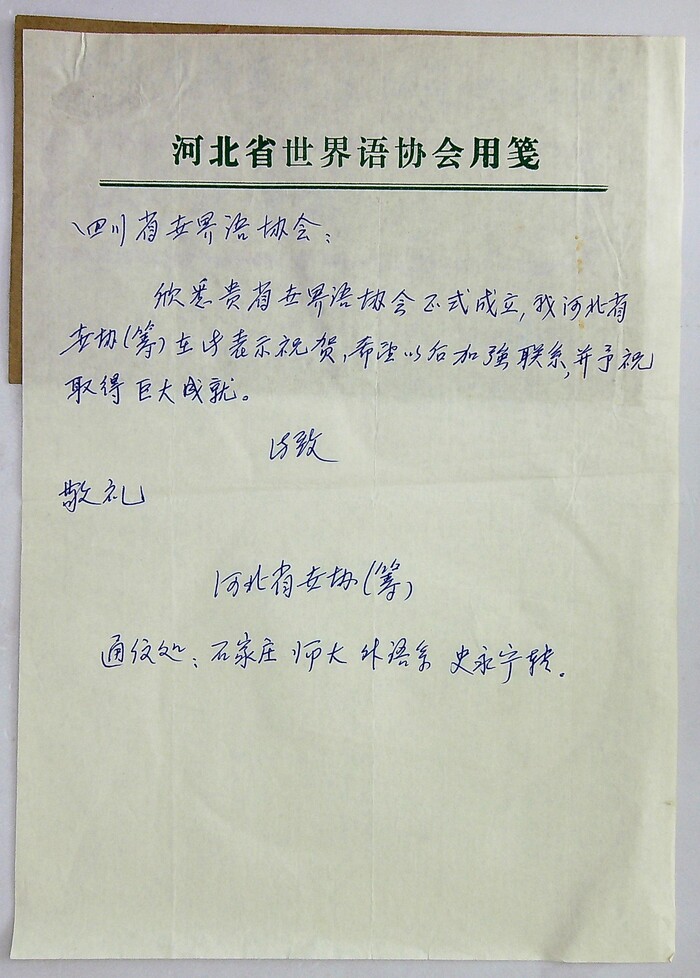 河北省世界语协会用笺
四川省世界语协会：
欣悉贵省世界语协会正式成立，我河北省
世协(筹)在此表示祝贺，希望以后加強联系，并予祝
取得巨大成就。
此致
敬礼
河北省世协(筹)
通讯处：石家庄 师大 外语系 史永宁转。